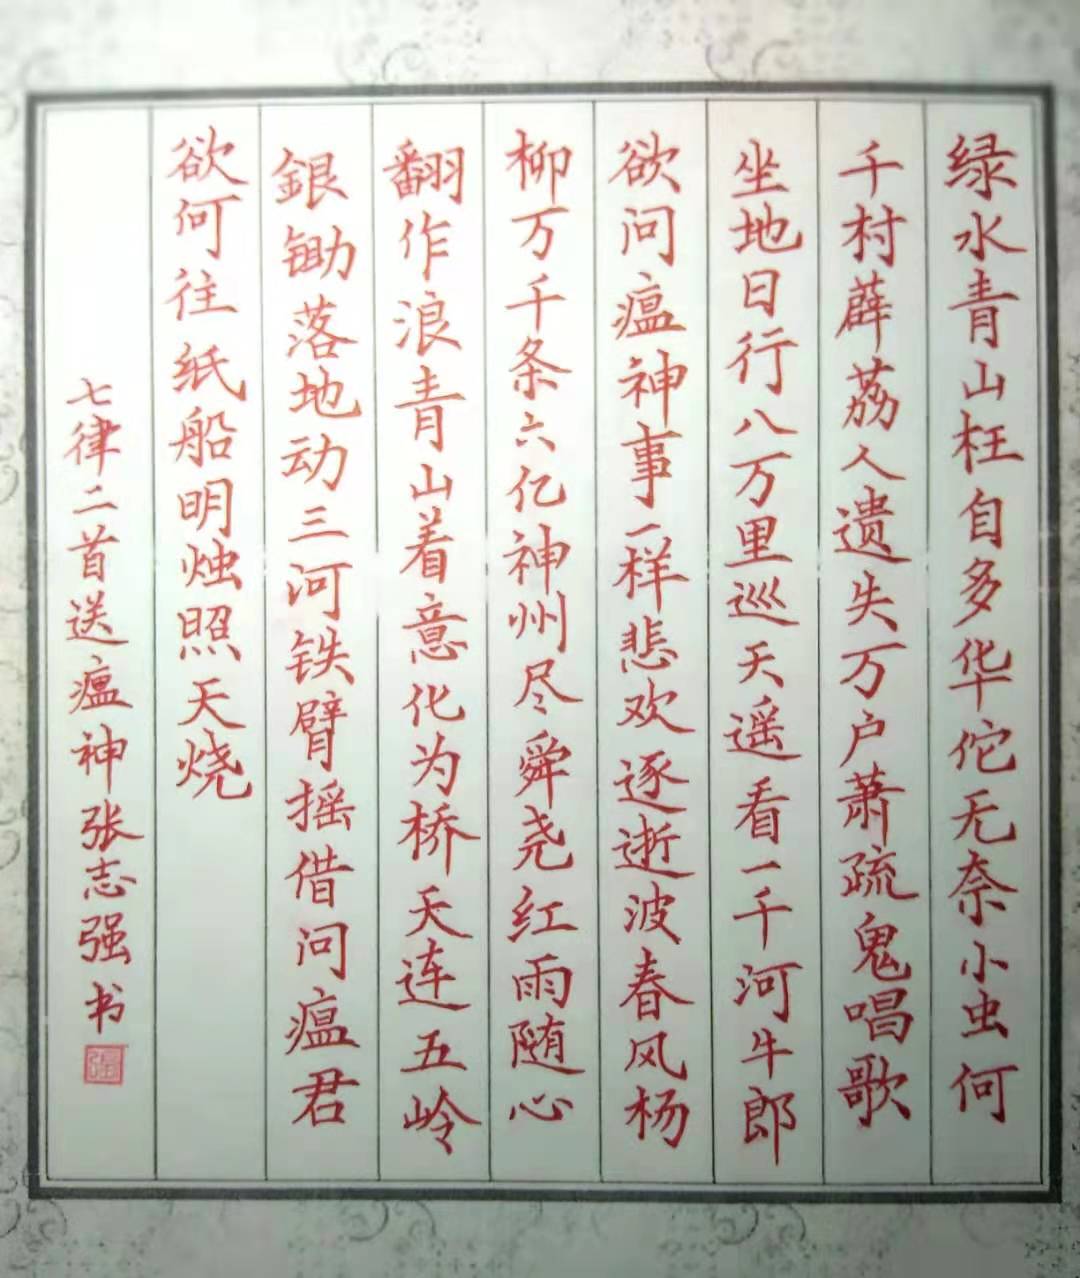 绿水青山枉自多华佗无奈小虫何
千村薜荔人遗失万户萧疏鬼唱歌
坐地日行八万里巡天遥看一千河牛郎
欲问瘟神事一样悲欢逐逝波春风杨
柳万千条六亿神州尽舜尧红雨随心
翻作浪青山着意化为桥天连五岭
銀锄落地动三河铁臂摇借问瘟君
欲何往纸船明烛照天烧
七律二首送瘟神张志强书